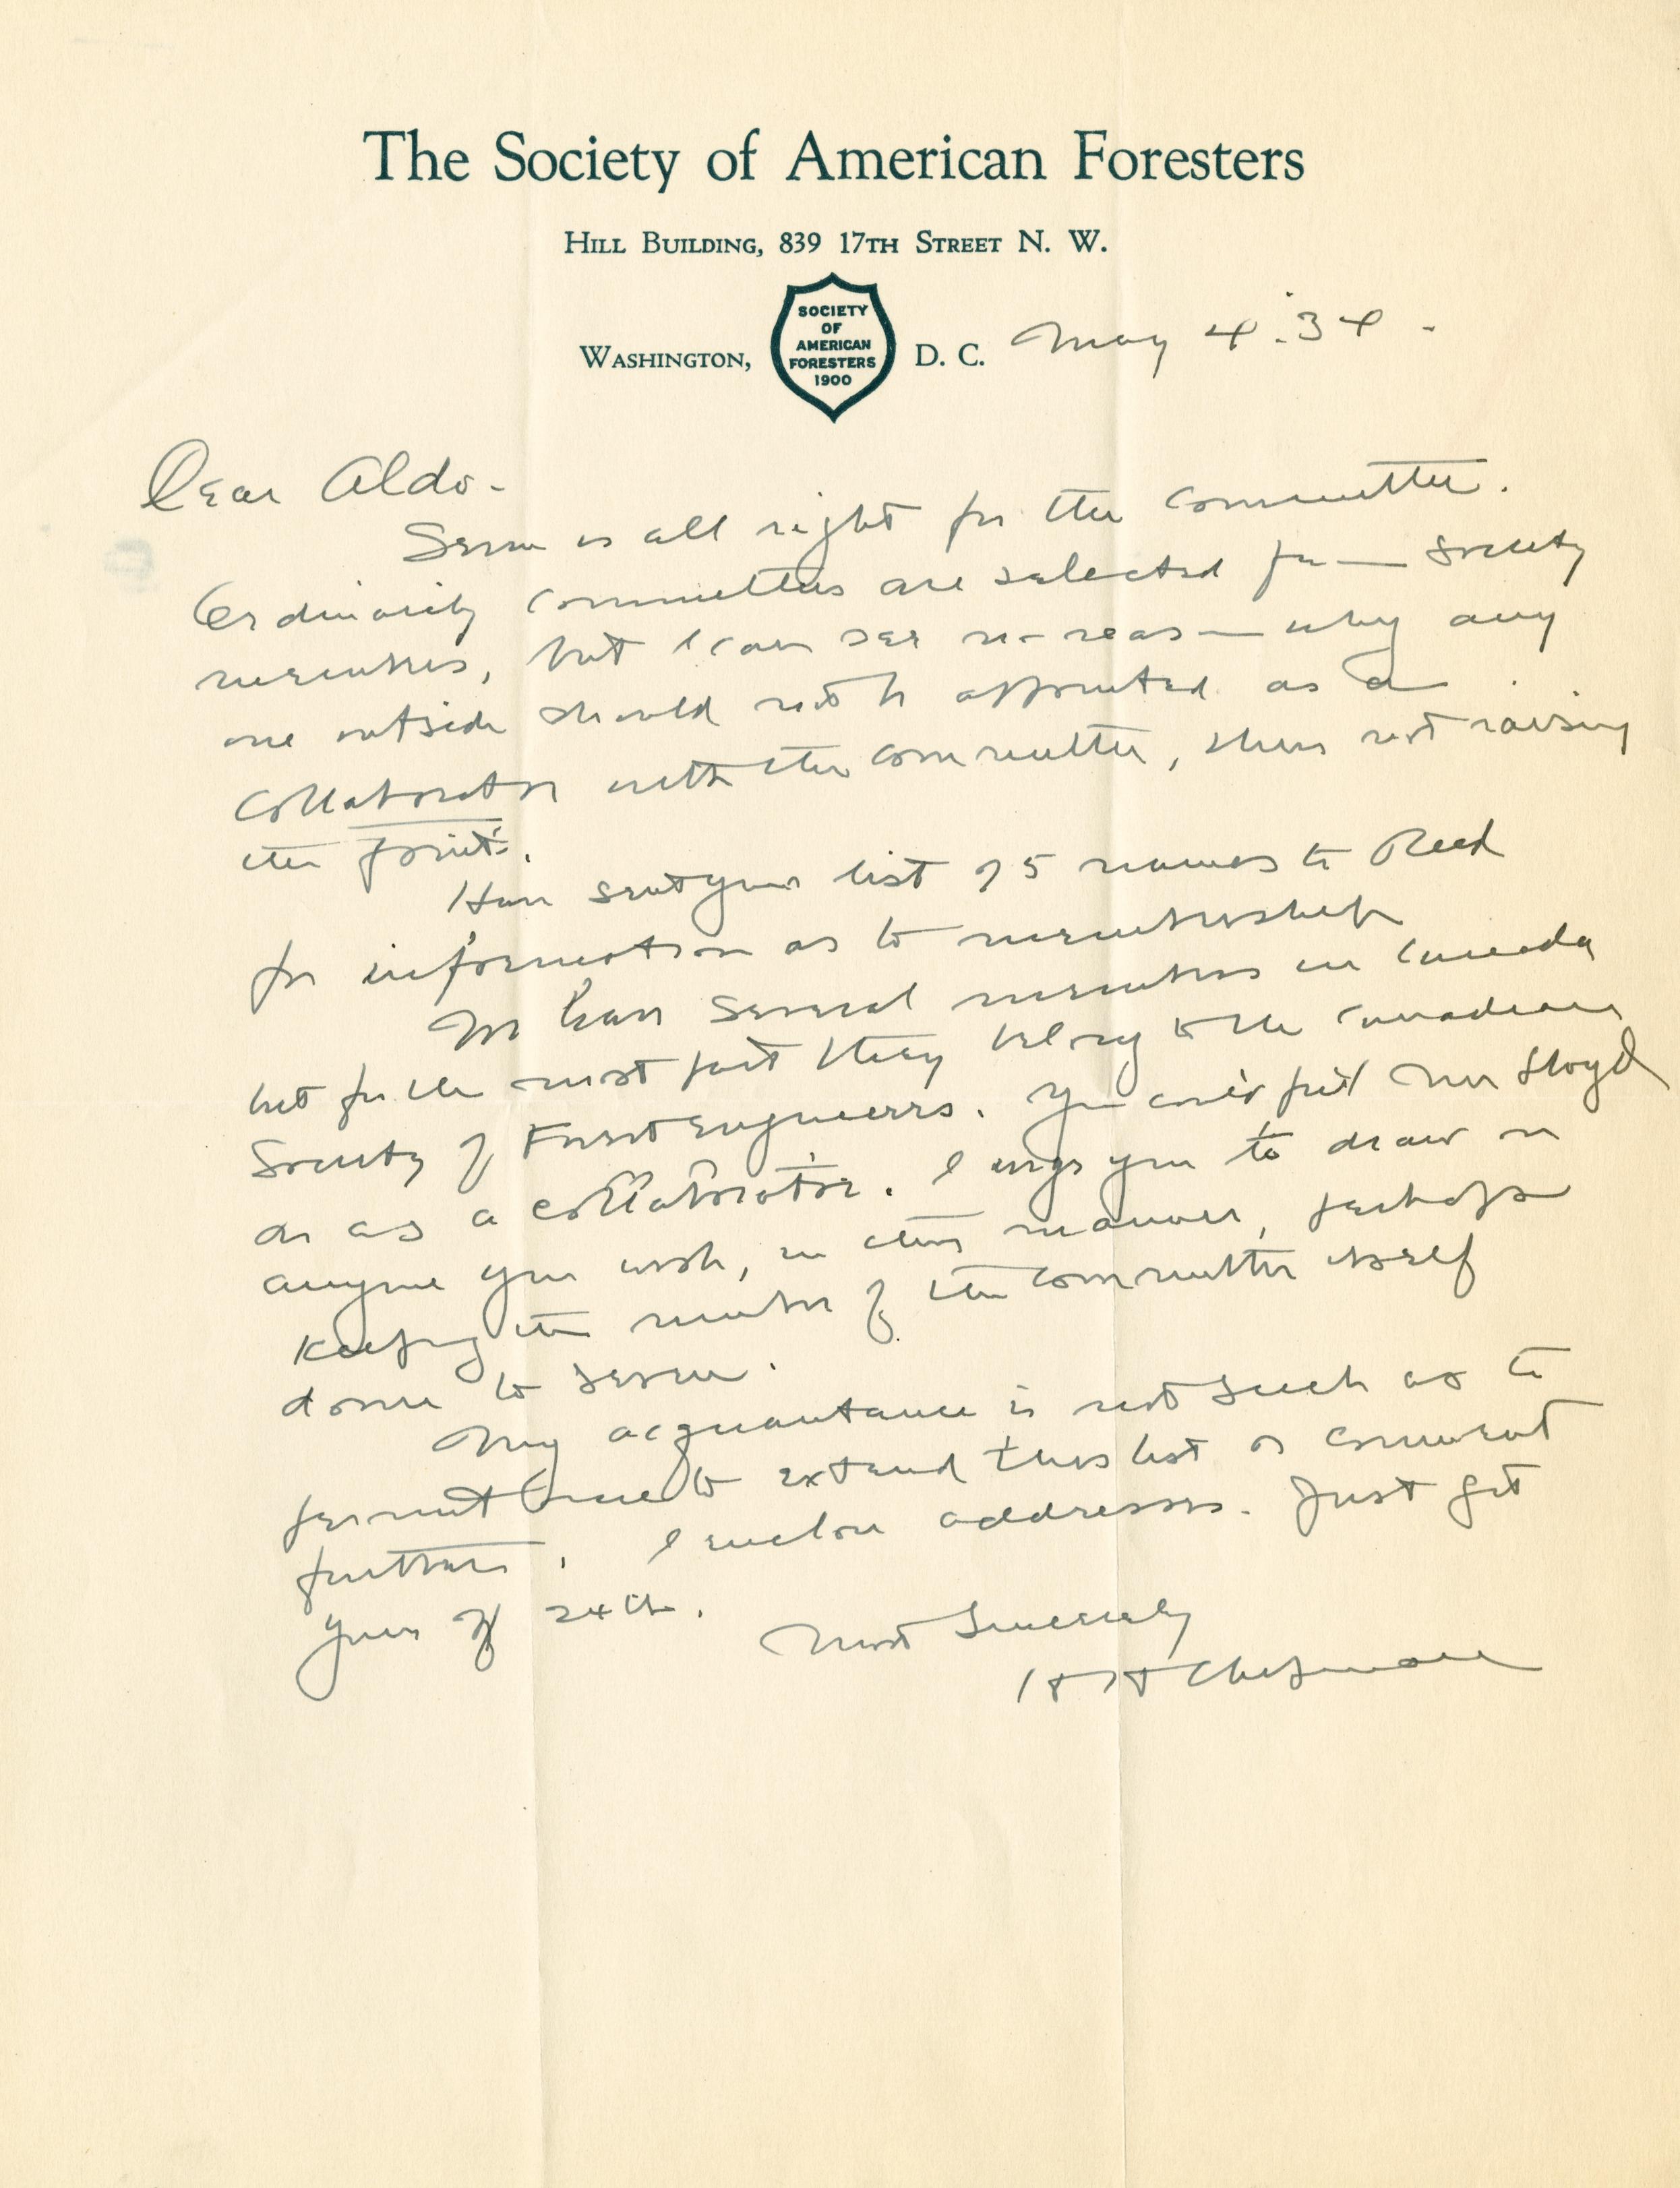 The Society of American Foresters
Hill Building, 839 17th Street N. W.
Washington, D. C. May 4. '34.
SOCIETY
OF
AMERICAN
FORESTERS
1900
Dear Aldo-
Seven is all right for the committee.
Ordinarily committees are selected from Society
members, but I can see no reason why any
one outside should not be appointed as a
collaborator with the committee, thus not raising
the point.
Have sent your list of 5 names to Reed
for information as to membership
We have several members in Canada
but for the most part they belong to the Canadian
Society of Forest Engineers. You could put Lloyd
on as a collaborator. I urge you to draw in
anyone you wish, in this manner, perhaps
keeping the number of the committee itself
down to seven.
My acquaintance is not such as to
permit me to extend this list or comment
further. I enclose addresses. Just got
yours of 24th.
Most Sincerely
H H Chapman